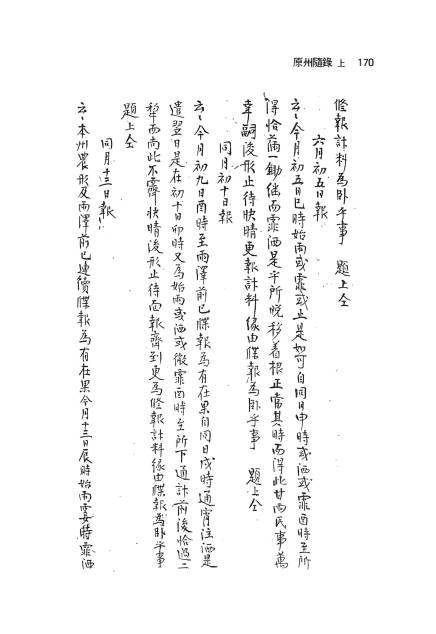 原州隨錄 上 170
修報計料爲卧乎事 題上仝
六月初五日報
云云今月初五日巳時始雨或霏或止是如可自同日申時或洒或霏酉時至所
得恰滿一鋤继而霏洒是乎所晩移着根正當其時而得此甘雨民事萬
幸嗣後形止待快晴更報計料緣由牒報爲卧乎事 題上仝
同月初十日報
云云今月初九日酉時至雨澤前已牒報爲有在果自同日戌時通宵注洒是
遣翌日是在初十日卯時又爲始雨或洒或微霏酉時至所下通計前後恰過二
犂而尚此不霽快晴後形止待面報齊到更爲修報計料緣由牒報爲卧乎事
題上仝
同月十三日報
云云本州農形及雨澤前已連續牒報爲有在果今月十三日辰時始雨霎時霏洒